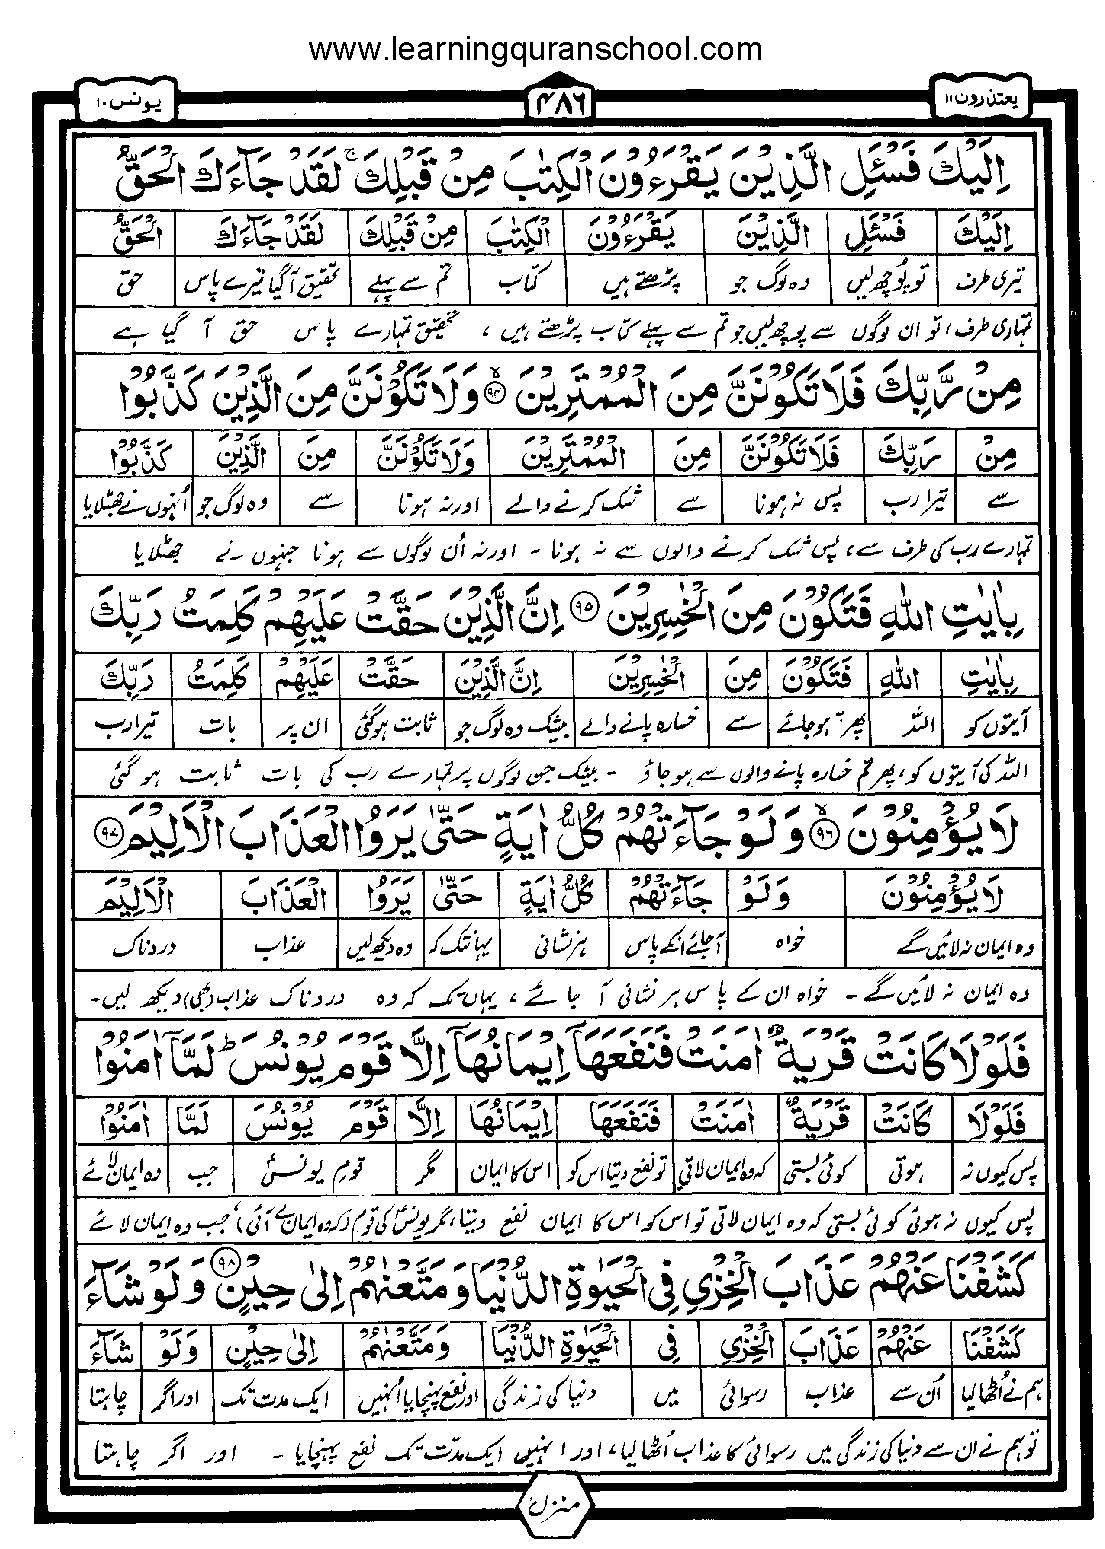 www.learningquranschool.com
یعتذرون۱۱ ۴۸۶ یونس۱۰
اِلَیْكَ فَسْـَٔلِ الَّذِیْنَ یَقْرَءُوْنَ الْكِتٰبَ مِنْ قَبْلِكَ ۚ لَقَدْ جَآءَكَ الْحَقُّ
اِلَیْكَ فَسْـَٔلِ الَّذِیْنَ یَقْرَءُوْنَ الْكِتٰبَ مِنْ قَبْلِكَ لَقَدْ جَآءَكَ الْحَقُّ
تیری طرف تو پُوچھ لیں وہ لوگ جو پڑھتے ہیں کتاب تم سے پہلے تحقیق آگیا تیرے پاس حق
تمہاری طرف، تو ان لوگوں سے پوچھ لیں جو تم سے پہلے کتاب پڑھتے ہیں، تحقیق تمہارے پاس حق آ گیا ہے
مِنْ رَّبِّكَ فَلَا تَكُوْنَنَّ مِنَ الْمُمْتَرِیْنَ ۙ۹۴ وَلَا تَكُوْنَنَّ مِنَ الَّذِیْنَ كَذَّبُوْا
مِنْ رَبِّكَ فَلَا تَكُوْنَنَّ مِنَ الْمُمْتَرِیْنَ وَلَا تَكُوْنَنَّ مِنَ الَّذِیْنَ كَذَّبُوْا
سے تیرا رب پس نہ ہونا سے شک کرنے والے اور نہ ہونا سے وہ لوگ جو اُنہوں نے جھٹلایا
تمہارے رب کی طرف سے، پس شک کرنے والوں سے نہ ہونا - اور نہ اُن لوگوں سے ہونا جنہوں نے جھٹلایا
بِاٰیٰتِ اللّٰهِ فَتَكُوْنَ مِنَ الْخٰسِرِیْنَ ۹۵ اِنَّ الَّذِیْنَ حَقَّتْ عَلَیْهِمْ كَلِمَتُ رَبِّكَ
بِاٰیٰتِ اللّٰهِ فَتَكُوْنَ مِنَ الْخٰسِرِیْنَ اِنَّ الَّذِیْنَ حَقَّتْ عَلَیْهِمْ كَلِمَتُ رَبِّكَ
آیتوں کو اللہ پھر ہوجائے سے خسارہ پانے والے بیشک وہ لوگ جو ثابت ہوگئی ان پر بات تیرا رب
اللہ کی آیتوں کو، پھر تم خسارہ پانے والوں سے ہو جاؤ - بیشک جن لوگوں پر تمہارے رب کی بات ثابت ہو گئی
لَا یُؤْمِنُوْنَ ۙ۹۶ وَلَوْ جَآءَتْهُمْ كُلُّ اٰیَةٍ حَتّٰی یَرَوُا الْعَذَابَ الْاَلِیْمَ ۹۷
لَا یُؤْمِنُوْنَ وَلَوْ جَآءَتْهُمْ كُلُّ اٰیَةٍ حَتّٰی یَرَوُا الْعَذَابَ الْاَلِیْمَ
وہ ایمان نہ لائیں گے خواہ آجائے انکے پاس ہر نشانی یہانتک کہ وہ دیکھ لیں عذاب دردناک
وہ ایمان نہ لائیں گے - خواہ ان کے پاس ہر نشانی آ جائے، یہاں تک کہ وہ دردناک عذاب (بھی) دیکھ لیں-
فَلَوْلَا كَانَتْ قَرْیَةٌ اٰمَنَتْ فَنَفَعَهَاۤ اِیْمَانُهَاۤ اِلَّا قَوْمَ یُوْنُسَ ؕ لَمَّاۤ اٰمَنُوْا
فَلَوْلَا كَانَتْ قَرْیَةٌ اٰمَنَتْ فَنَفَعَهَا اِیْمَانُهَا اِلَّا قَوْمَ یُوْنُسَ لَمَّا اٰمَنُوْا
پس کیوں نہ ہوتی کوئی بستی کہ وہ ایمان لاتی تو نفع دیتا اس کو اس کا ایمان مگر قوم یونس جب وہ ایمان لائے
پس کیوں نہ ہوئی کوئی بستی کہ وہ ایمان لاتی تو اس کو اس کا ایمان نفع دیتا، مگر یونس کی قوم (کہ وہ ایمان لے آئی) جب وہ ایمان لائے
كَشَفْنَا عَنْهُمْ عَذَابَ الْخِزْیِ فِی الْحَیٰوةِ الدُّنْیَا وَمَتَّعْنٰهُمْ اِلٰی حِیْنٍ ۹۸ وَلَوْ شَآءَ
كَشَفْنَا عَنْهُمْ عَذَابَ الْخِزْیِ فِی الْحَیٰوةِ الدُّنْیَا وَمَتَّعْنٰهُمْ اِلٰی حِیْنٍ وَلَوْ شَآءَ
ہم نے اُٹھا لیا اُن سے عذاب رسوائی میں دنیا کی زندگی اور نفع پہنچایا اُنہیں ایک مدت تک اور اگر چاہتا
تو ہم نے ان سے دنیا کی زندگی میں رسوائی کا عذاب اُٹھا لیا، اور انہیں ایک مدّت تک نفع پہنچایا - اور اگر چاہتا
منزل